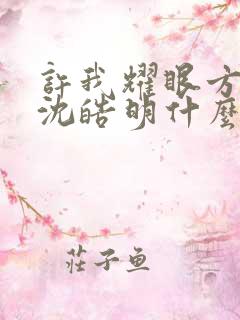 許我耀眼方
沈皓明什麼
莊子魚